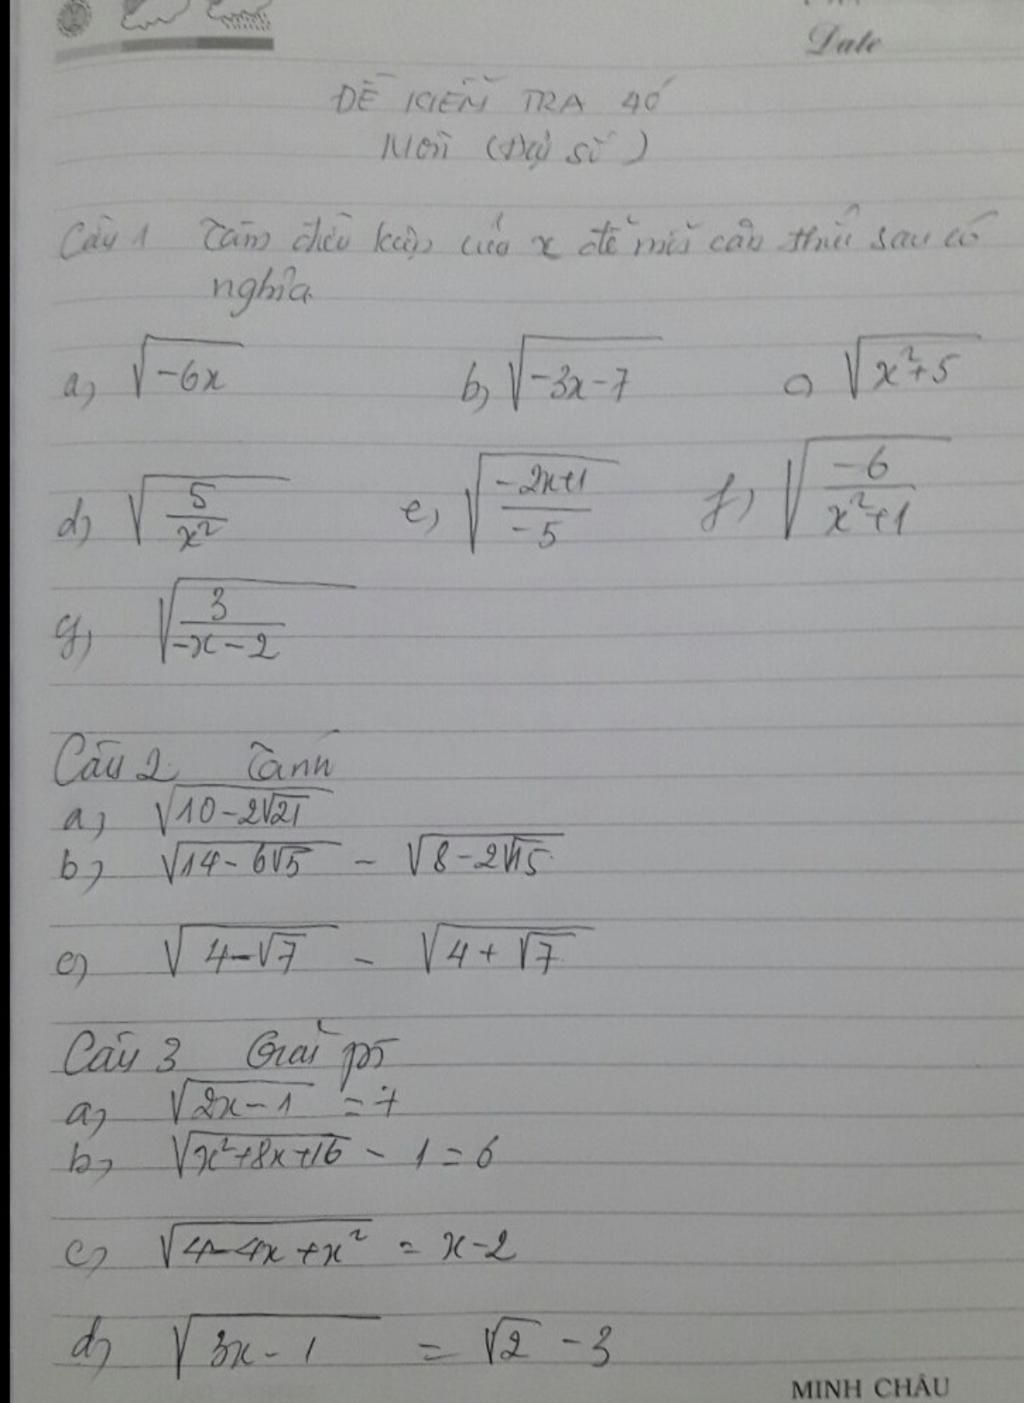 Date
ĐỀ KIỂM TRA 45
Môn (Đại số)
Câu 1 Tìm điều kiện của x để mỗi căn thức sau có
nghĩa
a, √(-6x) b, √(-3x-7) c) √(x²+5)
d, √(5/x²) e, √((-2x+1)/(-5)) f, √((-6)/(x²+1))
g, √(3/(-x-2))
Câu 2 Tính
a, √(10-2√21)
b, √(14-6√5) - √(8-2√15)
c) √(4-√7) - √(4+√7)
Câu 3 Giải pt
a, √(2x-1) = 7
b, √(x²+8x+16) - 1 = 6
c, √(4-4x+x²) = x-2
d, √(3x-1) = √2 - 3
MINH CHÂU